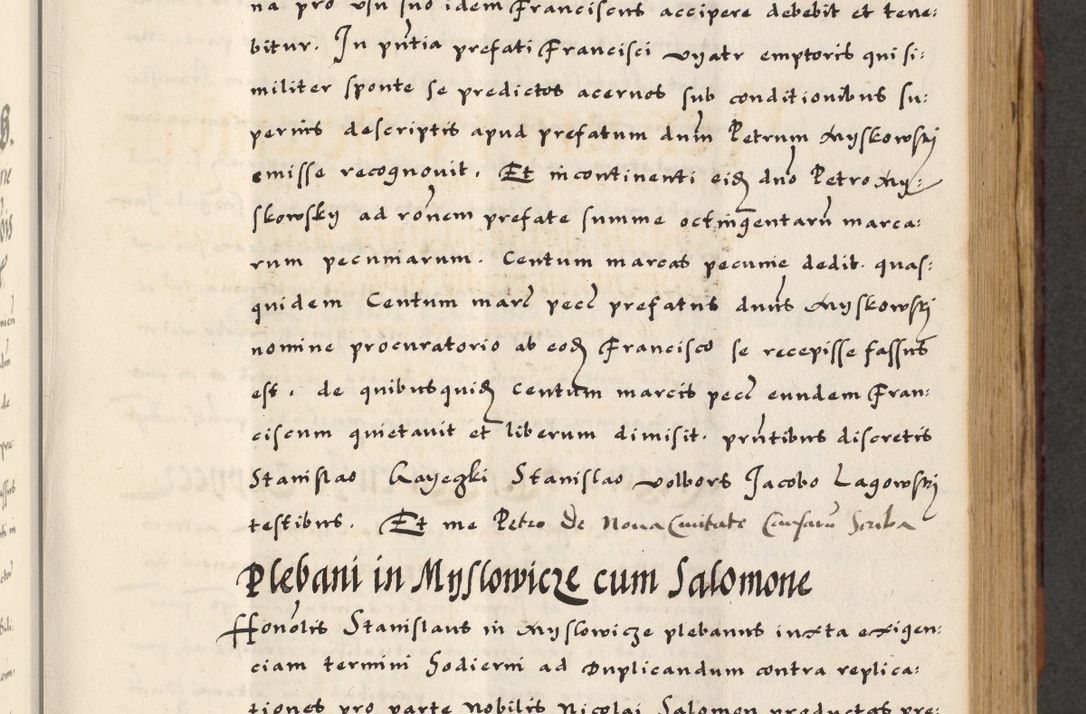 na pro usu suo idem Franciscus accipere debebit et tene:
bitur. In pn̄tia prefati Francisci vyatr emptoris qui si:
militer sponte se predictos acervos sub conditionibus su:
perius descriptis apud prefatum dnm Petrum Myskowskj
emisse recognouit. Et incontinenti eid dno Petro My:
skowsky ad ronem prefate summe octingentarū marca:
rum pecuniarum. Centum marcas pecunie dedit. quas:
quidem Centum marc pecc prefatus dnus Myskowskj
nomine procuratorio ab eod Francisco se recepisse fassus
est. de quibusquid Centum marcis pecc eundem Fran:
ciscum quietauit et liberum dimisit. prntibus discretis
Stanislao Stanislao volbors Jacobo Lagowskj
testibus. Et me Petro de Noua Ciuitate Causarū Scriba
Plebani in Myslowicze cum Salomone
Honolis Stanislaus in Myslowicze plebanus iuxta exigen:
ciam termini hodierni ad Duplicandum contra replica:
tiones pro parte nobilis Nicolai Salomon productas pre: